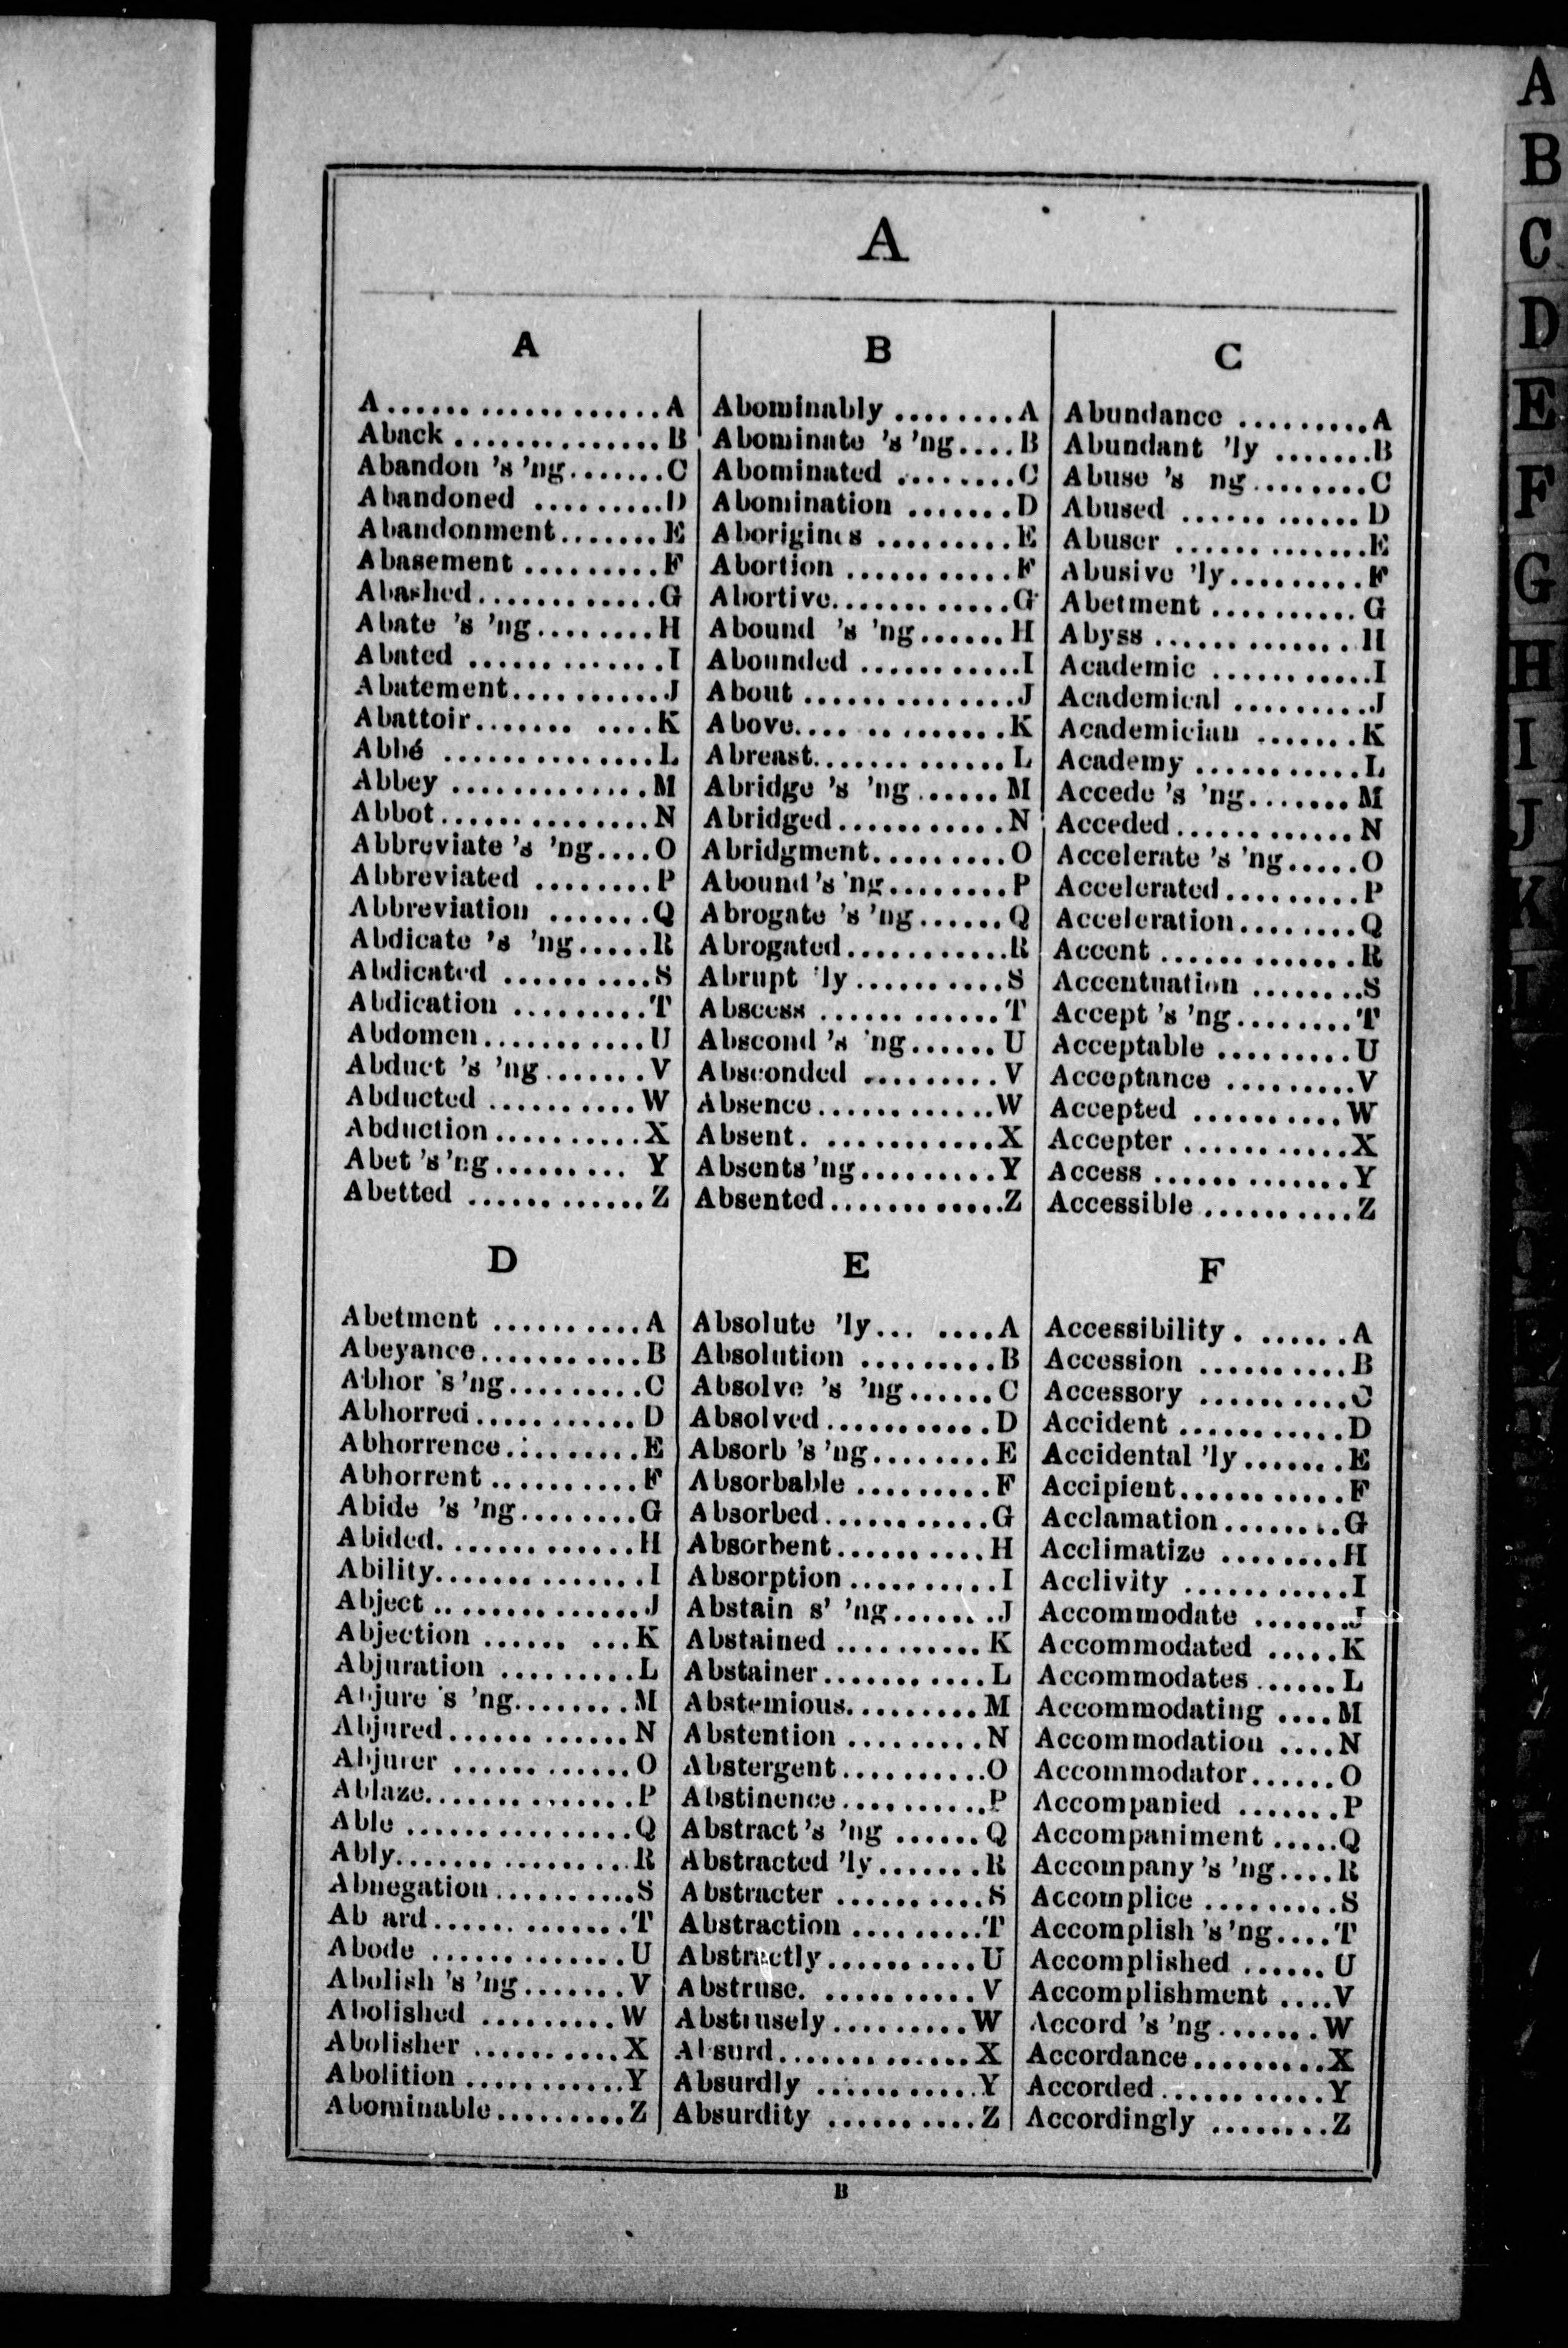 A
A
A...................A
Aback..............B
Abandon 's 'ng.......C
Abandoned ..........D
Abandonment.......E
Abasement .........F
Abashed.............G
Abate 's 'ng........H
Abated ..............I
Abatement...........J
Abattoir....... ....K
Abbé ...............L
Abbey .............M
Abbot...............N
Abbreviate 's 'ng....O
Abbreviated ........P
Abbreviation .......Q
Abdicate 's 'ng.....R
Abdicated ..........S
Abdication .........T
Abdomen...........U
Abduct 's 'ng.......V
Abducted ..........W
Abduction..........X
Abet 's 'ng......... Y
Abetted ............Z
B
Abominably ........A
Abominate 's 'ng....B
Abominated ........C
Abomination .......D
Aborigines .........E
Abortion ...........F
Abortive............G
Abound 's 'ng......H
Abounded ...........I
About ...............J
Above.... .. ........K
Abreast.............L
Abridge 's 'ng......M
Abridged...........N
Abridgment.........O
Abound 's 'ng........P
Abrogate 's 'ng......Q
Abrogated...........R
Abrupt 'ly..........S
Abscess ............T
Abscond 's 'ng......U
Absconded .........V
Absence............W
Absent. ...........X
Absents 'ng.........Y
Absented............Z
C
Abundance .........A
Abundant 'ly .......B
Abuse 's ng........C
Abused ............D
Abuser .............E
Abusive 'ly.........F
Abetment ...........G
Abyss ..............H
Academic ...........I
Academical ..........J
Academician .......K
Academy ...........L
Accede 's 'ng.......M
Acceded............N
Accelerate 's 'ng.....O
Accelerated.........P
Acceleration........Q
Accent .............R
Accentuation ........S
Accept 's 'ng........T
Acceptable .........U
Acceptance .........V
Accepted ..........W
Accepter ...........X
Access .............Y
Accessible..........Z
D
Abetment ..........A
Abeyance...........B
Abhor 's 'ng.........C
Abhorred...........D
Abhorrence.........E
Abhorrent ..........F
Abide 's 'ng........G
Abided.............H
Ability..............I
Abject ..............J
Abjection ...... ...K
Abjuration .........L
Abjure 's 'ng........M
Abjured............N
Abjurer ............O
Ablaze..............P
Able ...............Q
Ably................R
Abnegation..........S
Ab ard.............T
Abode .............U
Abolish 's 'ng.......V
Abolished .........W
Abolisher ..........X
Abolition ...........Y
Abominable.........Z
E
Absolute 'ly... ....A
Absolution .........B
Absolve 's 'ng......C
Absolved...........D
Absorb 's 'ng........E
Absorbable .........F
Absorbed...........G
Absorbent..........H
Absorption..........I
Abstain s' 'ng.......J
Abstained ..........K
Abstainer...........L
Abstemious.........M
Abstention .........N
Abstergent..........O
Abstinence..........P
Abstract 's 'ng ......Q
Abstracted 'ly.......R
Abstracter ..........S
Abstraction .........T
Abstractly..........U
Abstruse. ..........V
Abstrusely.........W
Absurd.............X
Absurdly ...........Y
Absurdity ..........Z
F
Accessibility. ......A
Accession ..........B
Accessory ..........C
Accident ...........D
Accidental 'ly.......E
Accipient...........F
Acclamation........G
Acclimatize ........H
Acclivity ...........I
Accommodate .......J
Accommodated .....K
Accommodates......L
Accommodating ....M
Accommodation ....N
Accommodator......O
Accompanied .......P
Accompaniment .....Q
Accompany 's 'ng....R
Accomplice .........S
Accomplish 's 'ng....T
Accomplished ......U
Accomplishment ....V
Accord 's 'ng.......W
Accordance.........X
Accorded...........Y
Accordingly ........Z
B
A
B
C
D
E
F
G
H
I
J
K
L